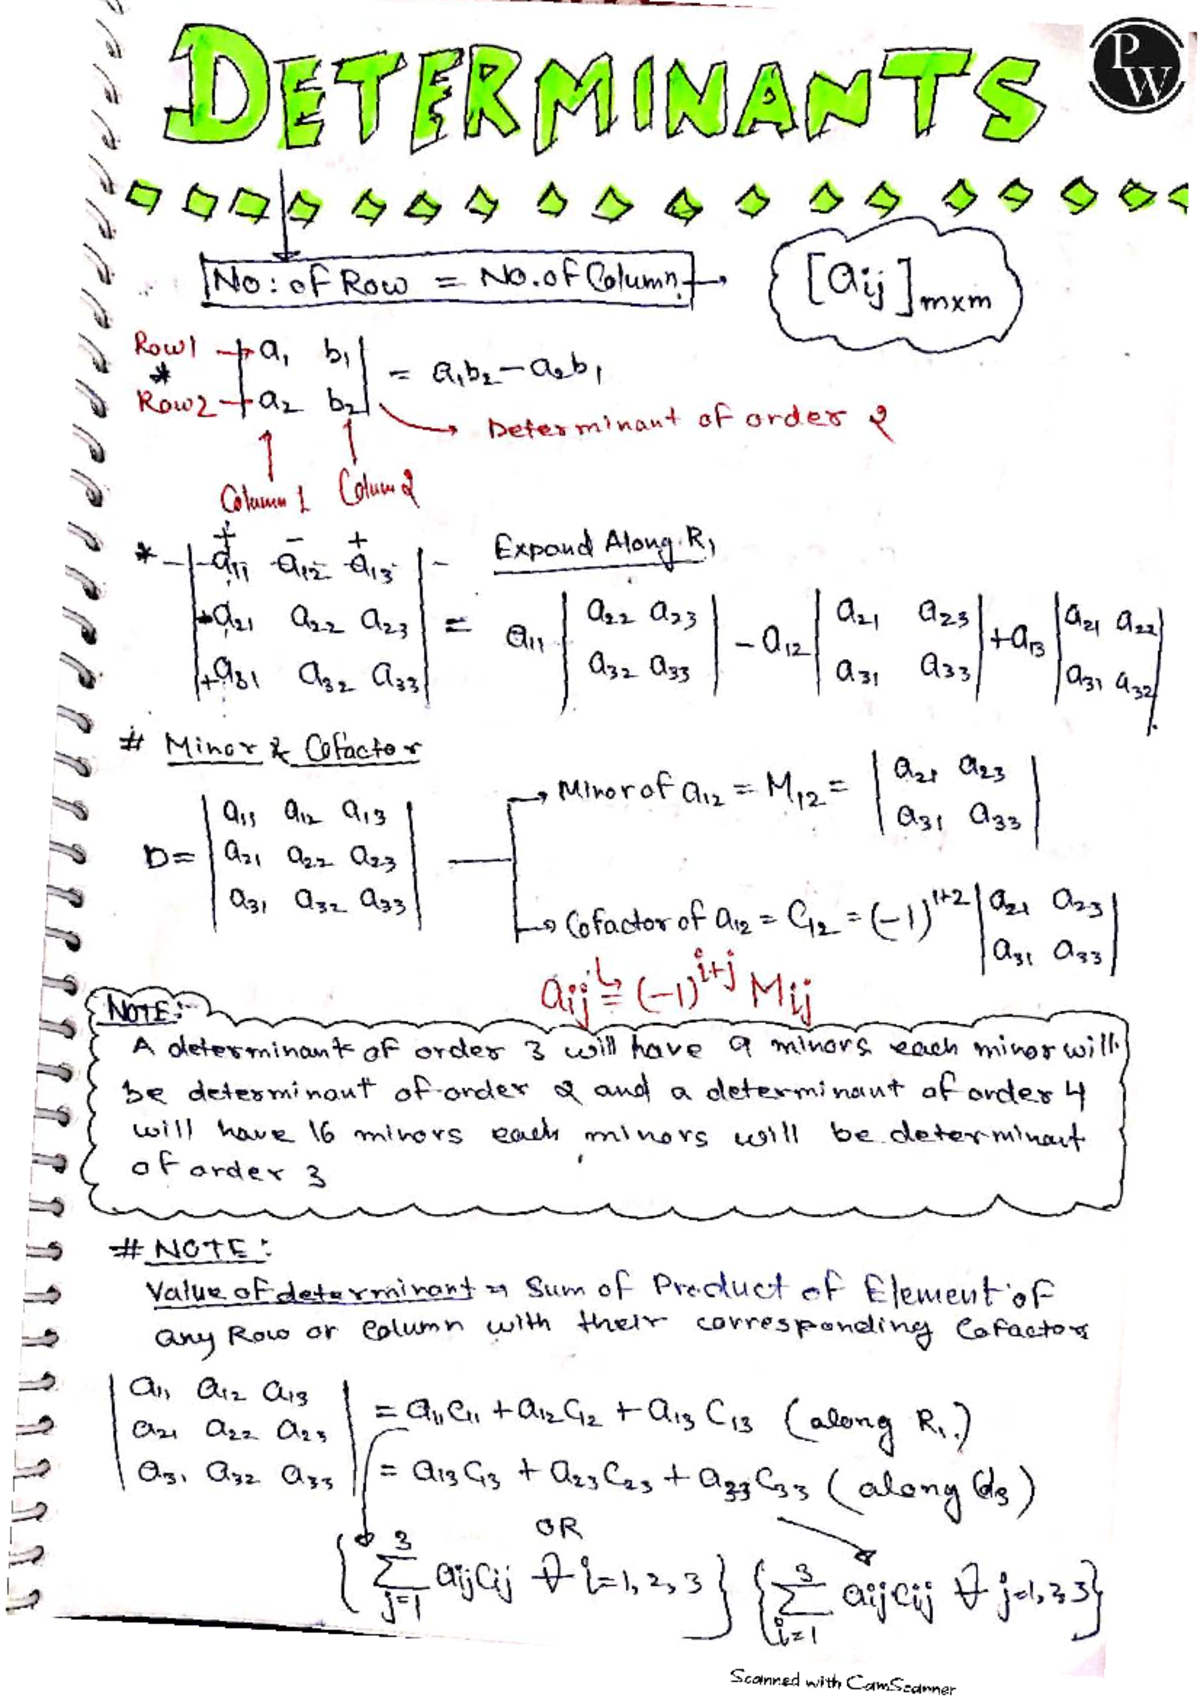 DETERMINANTS
PW
No: of Row = No. of Column → [aij]m×m
Row 1 → | a₁ b₁ |
* Row 2 → | a₂ b₂ | = a₁b₂ - a₂b₁
→ Determinant of order 2
Column 1 Colum 2
+ - +
* | a₁₁ a₁₂ a₁₃ | Expand Along R₁
| a₂₁ a₂₂ a₂₃ | = a₁₁ | a₂₂ a₂₃ | - a₁₂ | a₂₁ a₂₃ | + a₁₃ | a₂₁ a₂₂ |
| a₃₁ a₃₂ a₃₃ | | a₃₂ a₃₃ | | a₃₁ a₃₃ | | a₃₁ a₃₂ |
# Minor & Cofactor
→ Minor of a₁₂ = M₁₂ = | a₂₁ a₂₃ |
| a₃₁ a₃₃ |
| a₁₁ a₁₂ a₁₃ |
D = | a₂₁ a₂₂ a₂₃ |
| a₃₁ a₃₂ a₃₃ |
→ Cofactor of a₁₂ = C₁₂ = (-1)¹⁺² | a₂₁ a₂₃ |
| a₃₁ a₃₃ |
aij = (-1)^i+j Mij
NOTE:-
A determinant of order 3 will have 9 minors each minor will
be determinant of order 2 and a determinant of order 4
will have 16 minors each minors will be determinant
of order 3
# NOTE:
Value of determinant ⇒ Sum of Product of Element of
any Row or Column with their corresponding Cofactors
| a₁₁ a₁₂ a₁₃ |
| a₂₁ a₂₂ a₂₃ | = a₁₁C₁₁ + a₁₂C₁₂ + a₁₃C₁₃ (along R₁.)
| a₃₁ a₃₂ a₃₃ | = a₁₃C₁₃ + a₂₃C₂₃ + a₃₃C₃₃ (along C₃)
OR
{ 3 Σ j=1 aijcij ∀ i=1,2,3 } { 3 Σ i=1 aijcij ∀ j=1,2,3 }
Scanned with CamScanner